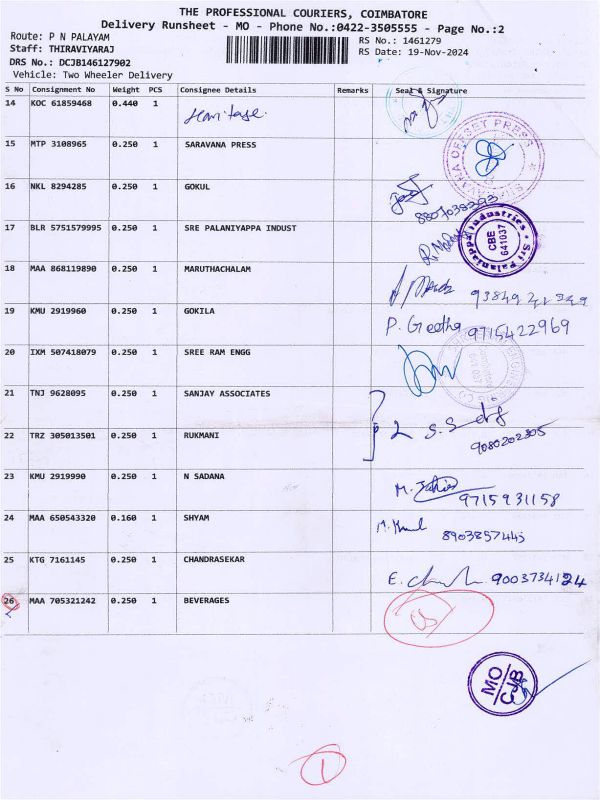 THE PROFESSIONAL COURIERS, COIMBATORE
Delivery Runsheet - MO - Phone No.:0422-3505555 - Page No.:2
Route: P N PALAYAM
RS No.: 1461279
Staff: THIRAVIYARAJ
RS Date: 19-Nov-2024
DRS No.: DCJB146127902
Vehicle: Two Wheeler Delivery
S No Consignment No Weight PCS Consignee Details Remarks Seal & Signature
14 KOC 61859468 0.440 1
15 MTP 3108965 0.250 1 SARAVANA PRESS
OFFSET PRESS
16 NKL 8294285 0.250 1 GOKUL
8807038293
17 BLR 5751579995 0.250 1 SRE PALANIYAPPA INDUST
Sri Palaniappa Industries
CBE
641037
18 MAA 868119890 0.250 1 MARUTHACHALAM
19 KMU 2919960 0.250 1 GOKILA P. Geetha 9715422969
20 IXM 507418079 0.250 1 SREE RAM ENGG
21 TNJ 9628095 0.250 1 SANJAY ASSOCIATES
22 TRZ 305013501 0.250 1 RUKMANI
2 S.S
9080202805
23 KMU 2919990 0.250 1 N SADANA M. 9715931158
24 MAA 650543320 0.160 1 SHYAM
8903857443
25 KTG 7161145 0.250 1 CHANDRASEKAR
E. 9003734124
26 MAA 705321242 0.250 1 BEVERAGES
MO
CJB
1